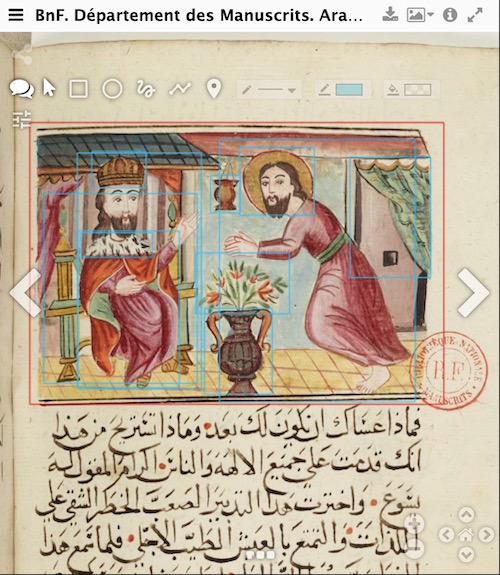 BnF. Département des Manuscrits. Ara...
BIBLIOTHEQUE NATIONALE
MANUSCRITS
فماذا عساك ان تكون لك بعد وماذا تستريح من هذا
انك قد على جميع الالهه والناس المقول له
يسوع واخترت هذا التدبير الصعب الخطر الشقي على
اللذات والتمتع بالعيش الطيب فلما سمع هذا